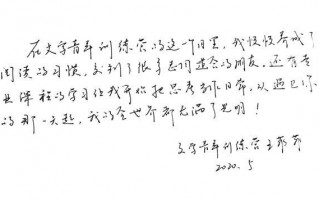 在文学青年训练营的这一个月里，我慢慢养成了
阅读的习惯，交到了很多志同道合的朋友。还有专
业课程的学习让我开始把思考刻进日常，从遇已你
的那一天起，我的全世界都充满了光明！
文学青年训练营王
2020.5